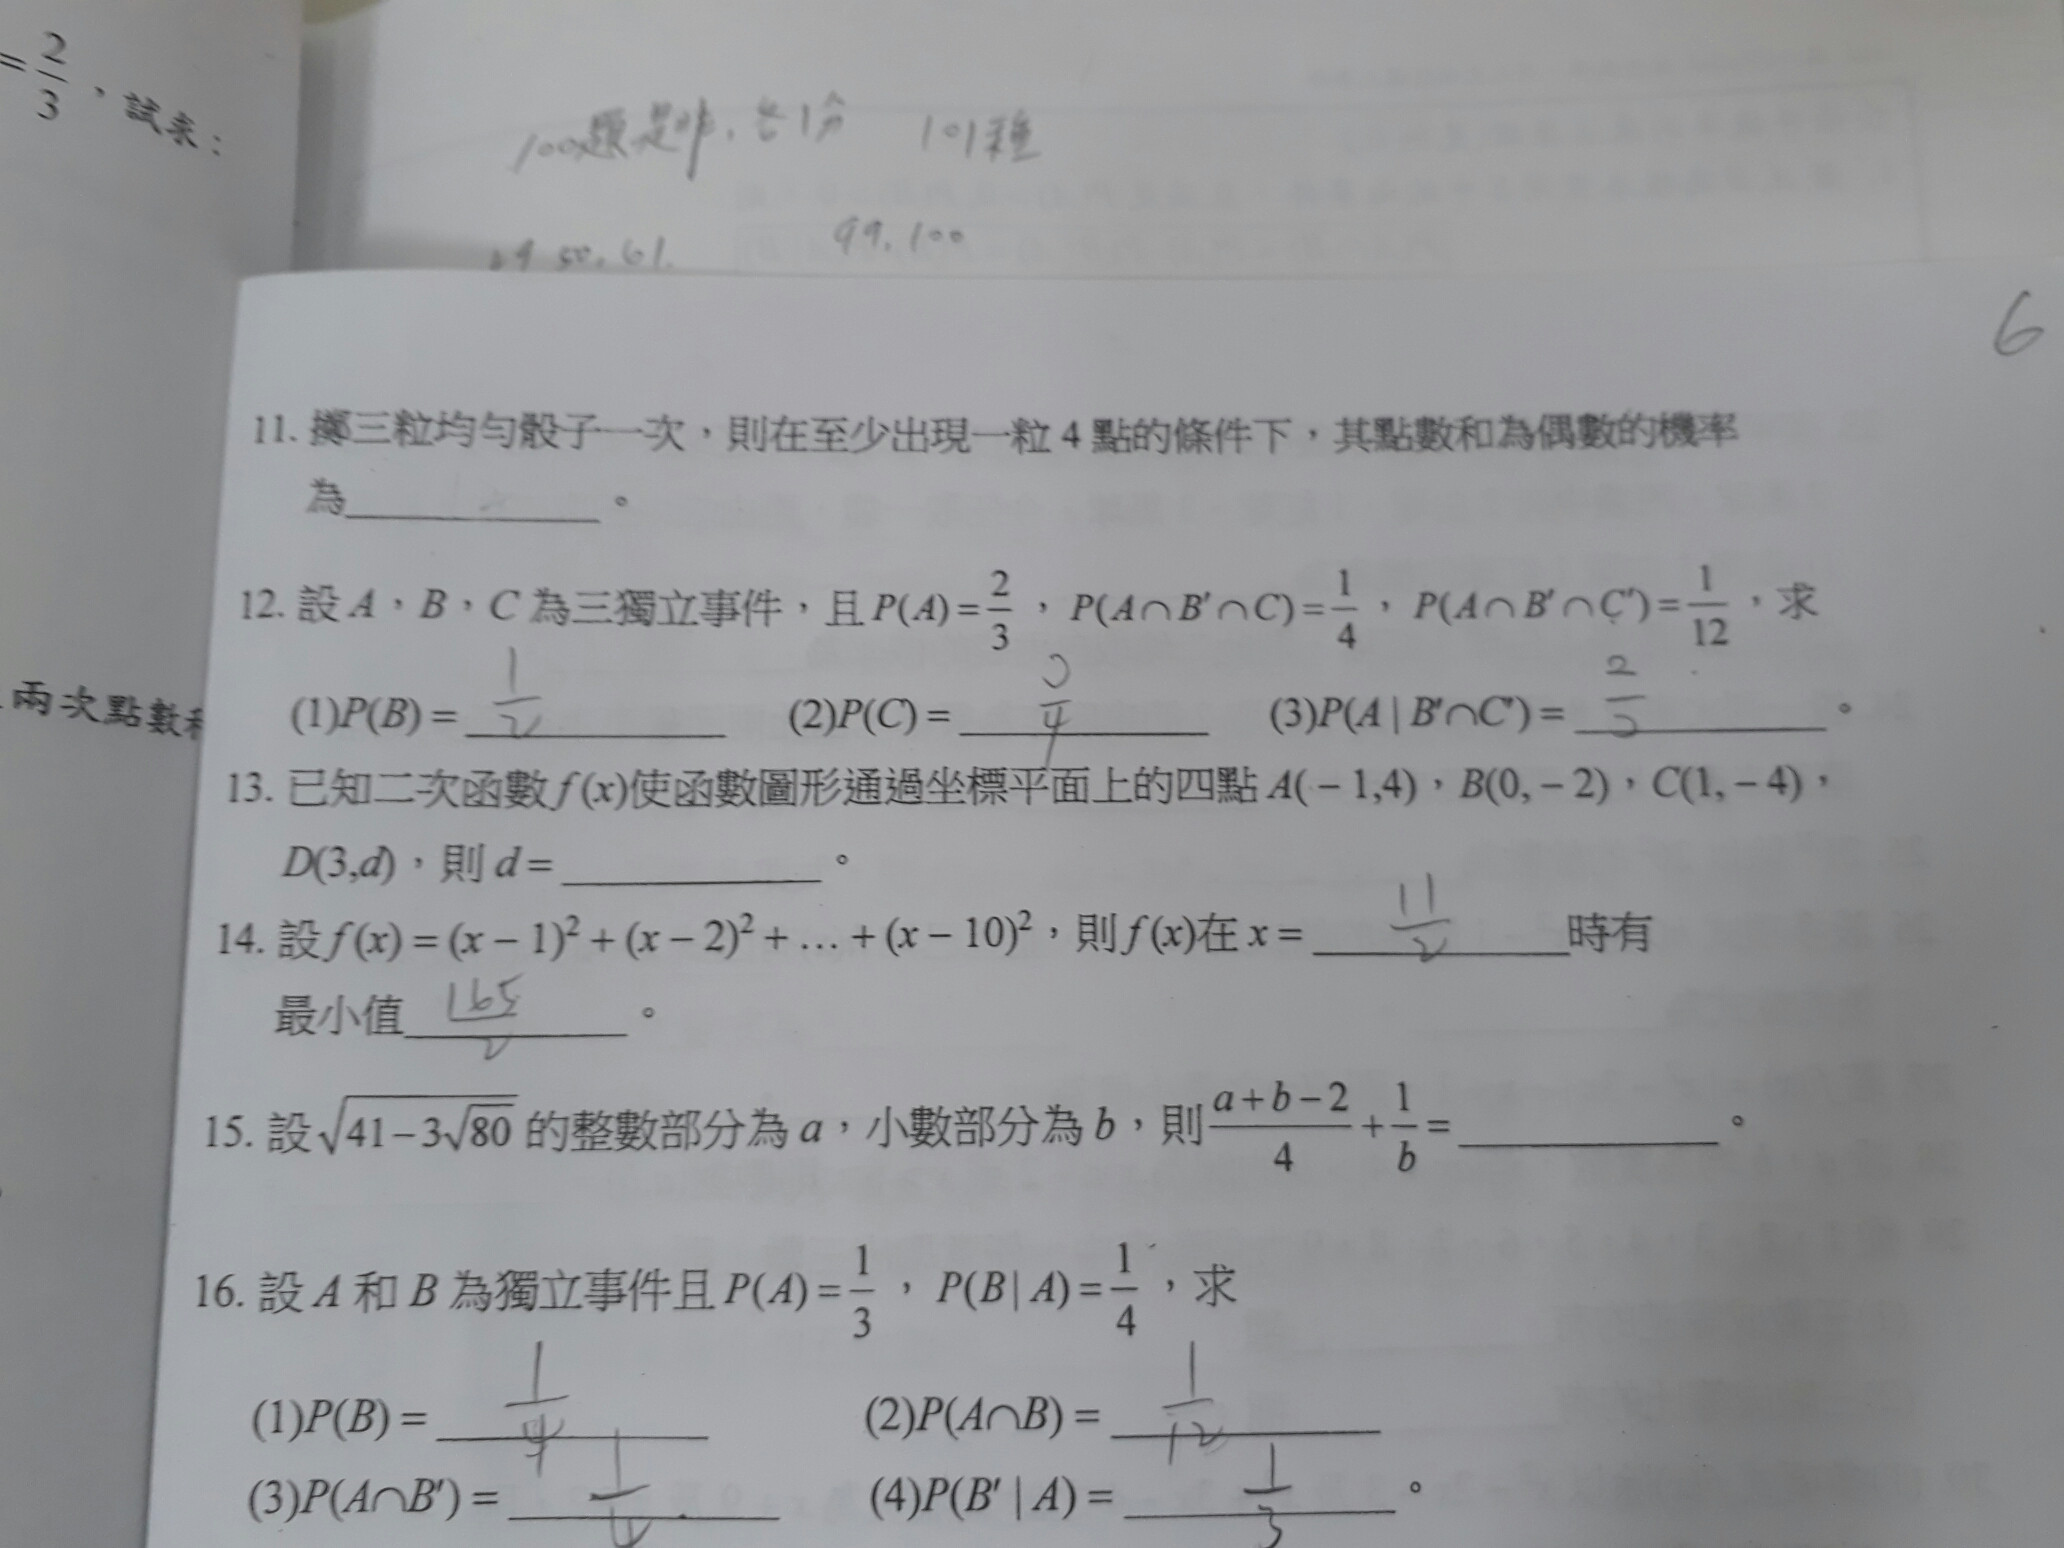 = 2/3，試求：
100題是非，各1分 101種
99.100
6
11. 擲三粒均勻骰子一次，則在至少出現一粒 4 點的條件下，其點數和為偶數的機率
為＿＿＿。
12. 設 A，B，C 為三獨立事件，且 P(A)=2/3，P(A∩B'∩C)=1/4，P(A∩B'∩C')=1/12，求
(1)P(B)= 1/2 (2)P(C)= 3/4 (3)P(A | B'∩C')= 2/3 。
兩次點數和
13. 已知二次函數 f (x)使函數圖形通過坐標平面上的四點 A(－1,4)，B(0,－2)，C(1,－4)，
D(3,d)，則 d=＿＿＿。
14. 設 f (x) = (x－1)² + (x－2)² + … + (x－10)²，則 f (x)在 x= 11/2 時有
最小值 165/2 。
15. 設 √(41－3√80) 的整數部分為 a，小數部分為 b，則 (a+b－2)/4 + 1/b =＿＿＿。
16. 設 A 和 B 為獨立事件且 P(A)=1/3，P(B| A)=1/4，求
(1)P(B) = 1/4 (2)P(A∩B) = 1/12
(3)P(A∩B') = 1/4 (4)P(B' | A) = 1/3 。